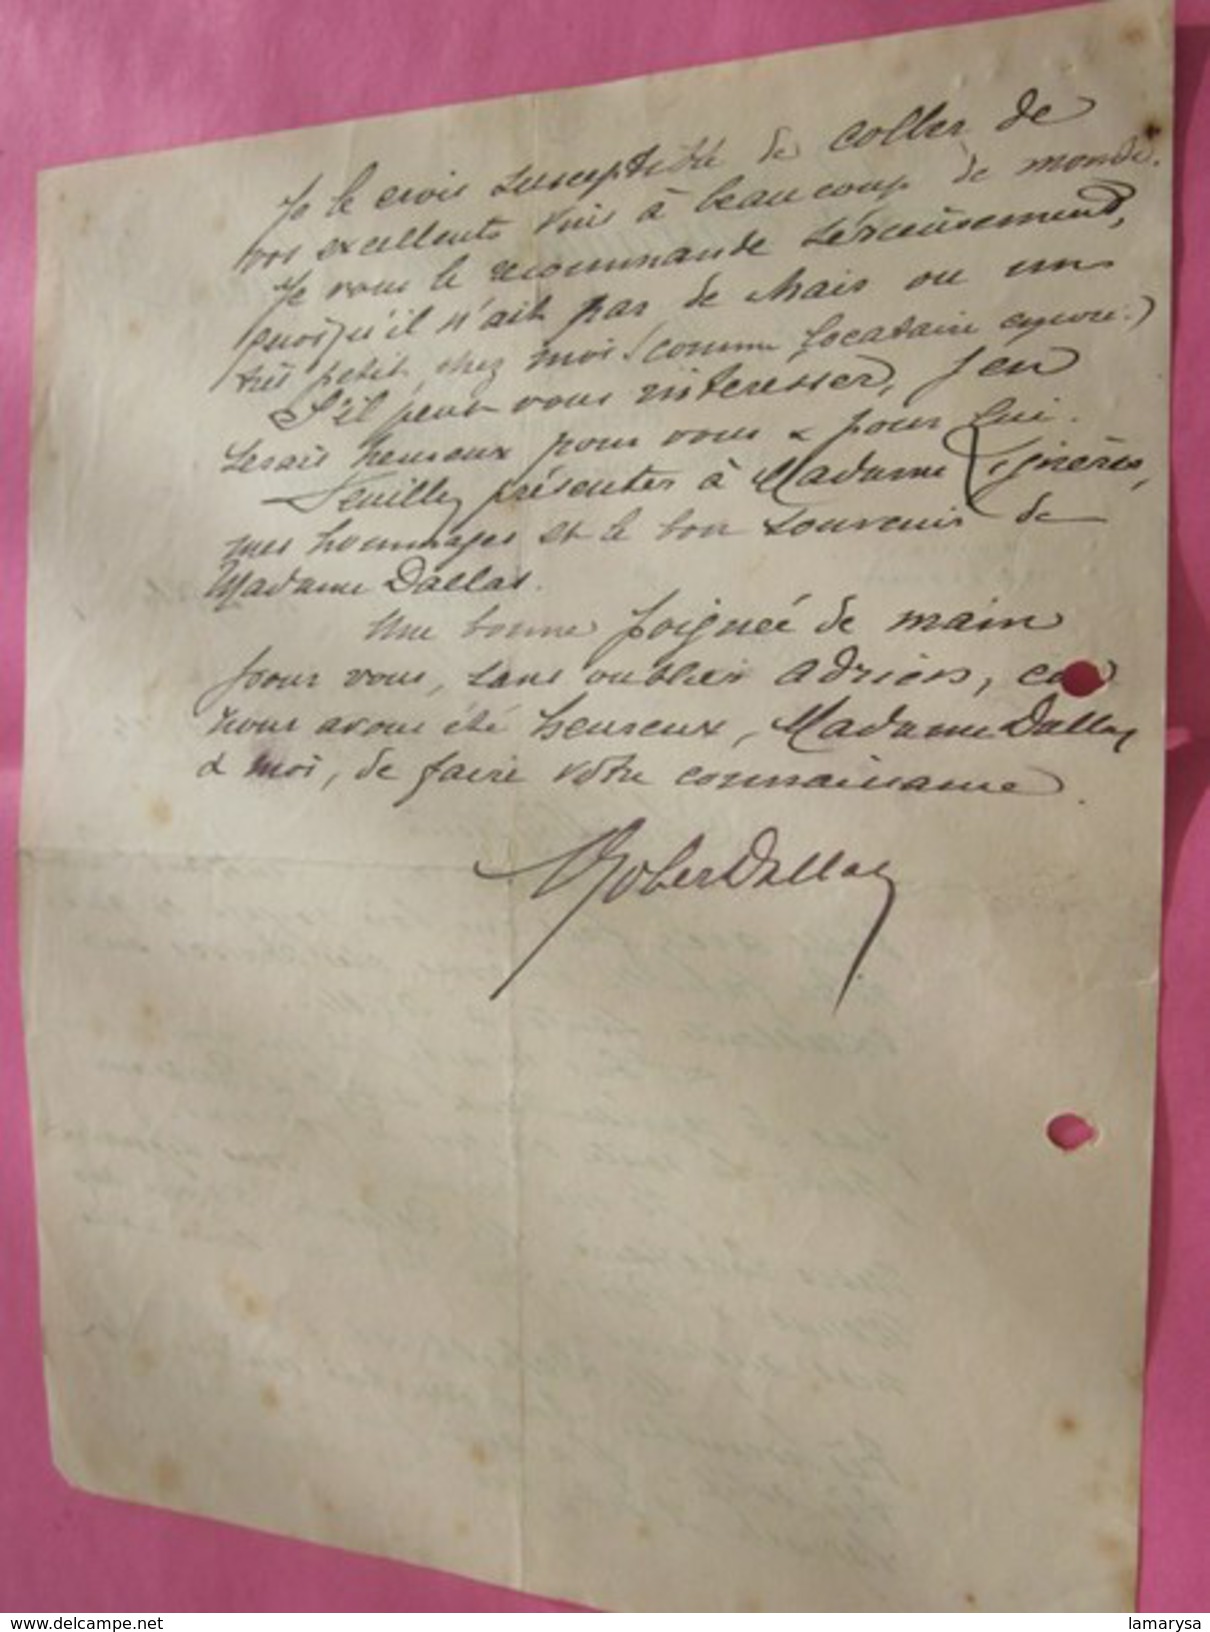 Je le crois susceptible de coller de
vos excellents vins à beaucoup de monde.
Je vous le recommande sérieusement,
quoiqu'il n'ait pas de chais ou un
très petit chez moi (comme locataire encore.)
S'il peut vous intéresser, j'en
serais heureux pour vous & pour lui.
Veuillez présenter à Madame Lignères,
mes hommages et le bon souvenir de
Madame Dallas.
Une bonne poignée de main
pour vous, sans oublier Adrien, car
nous avons été heureux, Madame Dallas
& moi, de faire votre connaissance.
Dallas
delcampe.net
lamarysa